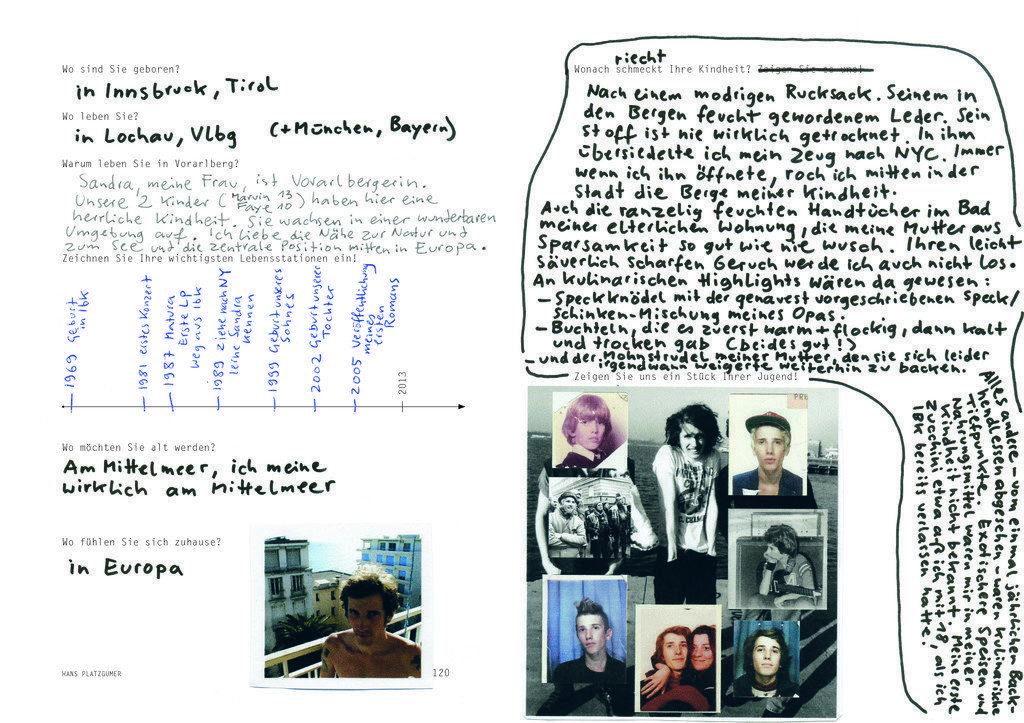 Wo sind Sie geboren?
in Innsbruck, Tirol
Wo leben Sie?
in Lochau, Vlbg (+München, Bayern)
Warum leben Sie in Vorarlberg?
Sandra, meine Frau, ist Vorarlbergerin.
Unsere 2 Kinder (Marvin 13 Faye 10) haben hier eine
herrliche Kindheit. Sie wachsen in einer wunderbaren
Umgebung auf. Ich liebe die Nähe zur Natur und
zum See und die zentrale Position mitten in Europa.
Zeichnen Sie Ihre wichtigsten Lebensstationen ein!
1969 Geburt in Ibk
1981 erstes Konzert
1987 Matura
Erste LP
weg aus Ibk
1989 Ziehe nach NY
lerne Sandra
kennen
1999 Geburt unseres
Sohnes
2002 Geburt unserer
Tochter
2005 Veröffentlichung
meines
ersten
Romans
2013
Wo möchten Sie alt werden?
Am Mittelmeer, ich meine
wirklich am Mittelmeer
Wo fühlen Sie sich zuhause?
in Europa
HANS PLATZGUMER
120
riecht
Wonach schmeckt Ihre Kindheit? Zeigen Sie es uns!
Nach einem modrigen Rucksack. Seinem in
den Bergen feucht gewordenem Leder. Sein
Stoff ist nie wirklich getrocknet. In ihm
übersiedelte ich mein Zeug nach NYC. Immer
wenn ich ihn öffnete, roch ich mitten in der
Stadt die Berge meiner Kindheit.
Auch die ranzelig feuchten Handtücher im Bad
meiner elterlichen Wohnung, die meine Mutter aus
Sparsamkeit so gut wie nie wusch. Ihren leicht
säuerlich scharfen Geruch werde ich auch nicht los.
An kulinarischen Highlights wären da gewesen:
- Speckknödel mit der genauest vorgeschriebenen Speck/
Schinken-Mischung meines Opas.
- Buchteln, die es zuerst warm + flockig, dann kalt
und trocken gab (beides gut!)
- und der Mohnstrudel meiner Mutter, den sie sich leider
irgendwann weigerte weiterhin zu backen.
Alles andere - vom ein mal jährlichen Back-
hendlessen abgesehen - waren kulinarische
Tiefpunkte. Exotischere Speisen und
Nahrungsmittel waren mir in meiner
Kindheit nicht bekannt. Meine erste
Zucchini etwa aß ich mit 18, als ich
IBK bereits verlassen hatte.
Zeigen Sie uns ein Stück Ihrer Jugend!